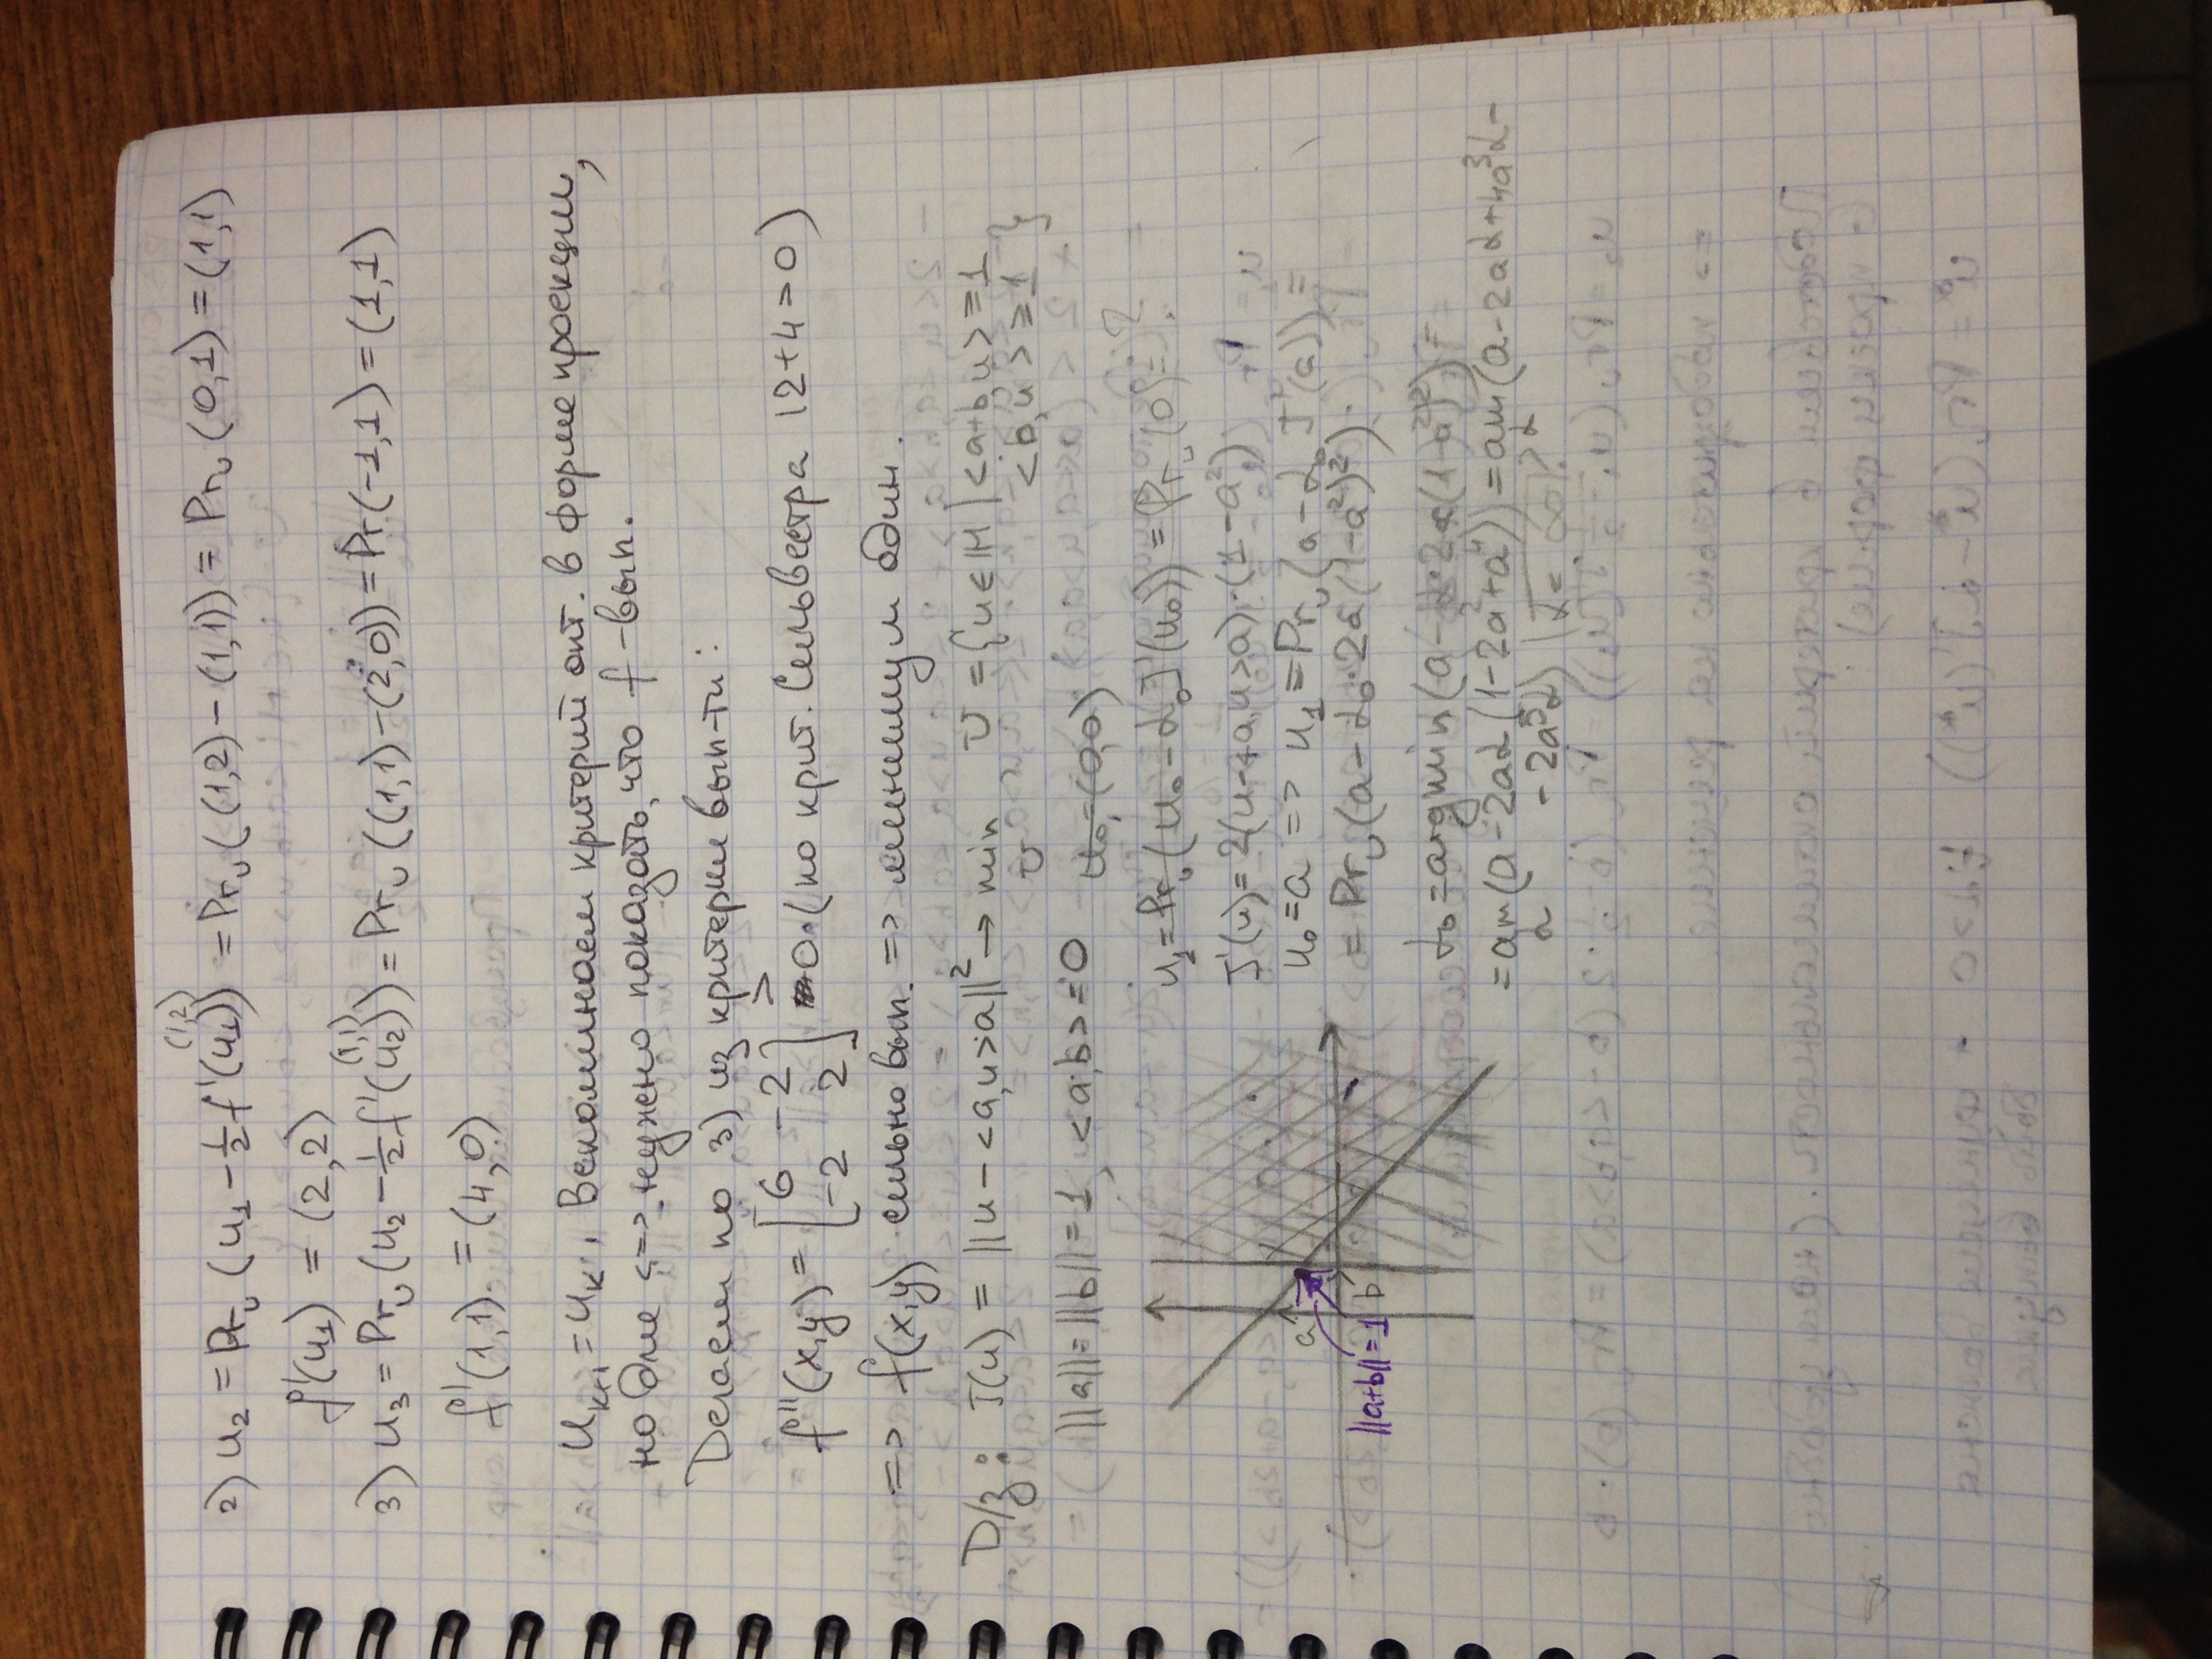 2) u₂ = Pr_U (u₁ - ½ f'(u₁)) = Pr_U ((1,2) - (1,1)) = Pr_U (0,1) = (1,1)
(1,2)
f'(u₁) = (2,2)
3) u₃ = Pr_U (u₂ - ½ f'(u₂)) = Pr_U ((1,1) - (2,0)) = Pr (-1,1) = (1,1)
(1,1)
f'(1,1) = (4,0)
u_{k+1} = u_k, Вспоминаем критерий опт. в форме проекции,
но для <=> нужно показать, что f - вып.
Делаем по 3) из критерии вып-ти:
f''(x,y) = [6 -2; -2 2] > 0 (по крит. Сильвестра 12+4=0)
=> f(x,y) сильно вып. => минимум один.
D/з: J(u) = ||u - <a,u>a||² → min U = {u∈H | <a+b,u> ≥ 1
U <b,u> ≥ 1}
||a|| = ||b|| = 1, <a,b> = 0 u₀ = (0,0)
u₁ = Pr_U (u₀ - α₀J'(u₀)) = Pr_U (0) = ?
J'(u) = 2(u - <a,u>a)·(1-a²)
u₀ = a => u₁ = Pr_U (a - α₀ J'(a)) =
= Pr_U (a - α₀·2a(1-a²)²)
α₀ = argmin (a - α·2a(1-a²)²) =
= am (a - 2aα(1-2a²+a⁴)) = am (a - 2aα + 4a³α -
α α
- 2a⁵α)
a
b
||a+b|| = 1